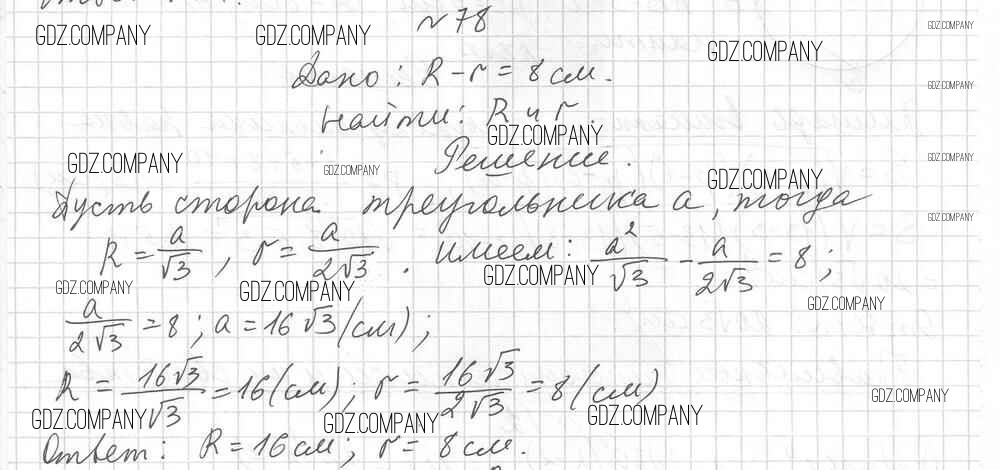 №78
GDZ.COMPANY GDZ.COMPANY GDZ.COMPANY GDZ.COMPANY
Дано: R - r = 8 см.
GDZ.COMPANY
Найти: R и r.
GDZ.COMPANY
GDZ.COMPANY GDZ.COMPANY Решение. GDZ.COMPANY
GDZ.COMPANY
Пусть сторона треугольника a, тогда
GDZ.COMPANY
R = a/√3, r = a/2√3. Имеем: a²/√3 - a/2√3 = 8;
GDZ.COMPANY GDZ.COMPANY GDZ.COMPANY GDZ.COMPANY
a/2√3 = 8; a = 16√3 (см);
R = 16√3/√3 = 16 (см); r = 16√3/2√3 = 8 (см)
GDZ.COMPANY GDZ.COMPANY GDZ.COMPANY GDZ.COMPANY
Ответ: R = 16 см; r = 8 см.